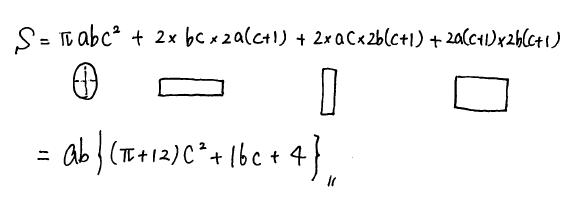 S = πabc² + 2× bc × 2a(c+1) + 2×ac×2b(c+1) + 2a(c+1)×2b(c+1)
= ab{(π+12)c² + 16c + 4}〃